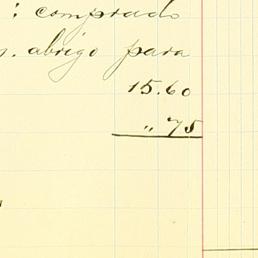 : comprado
abrigo para
15.60
" 75